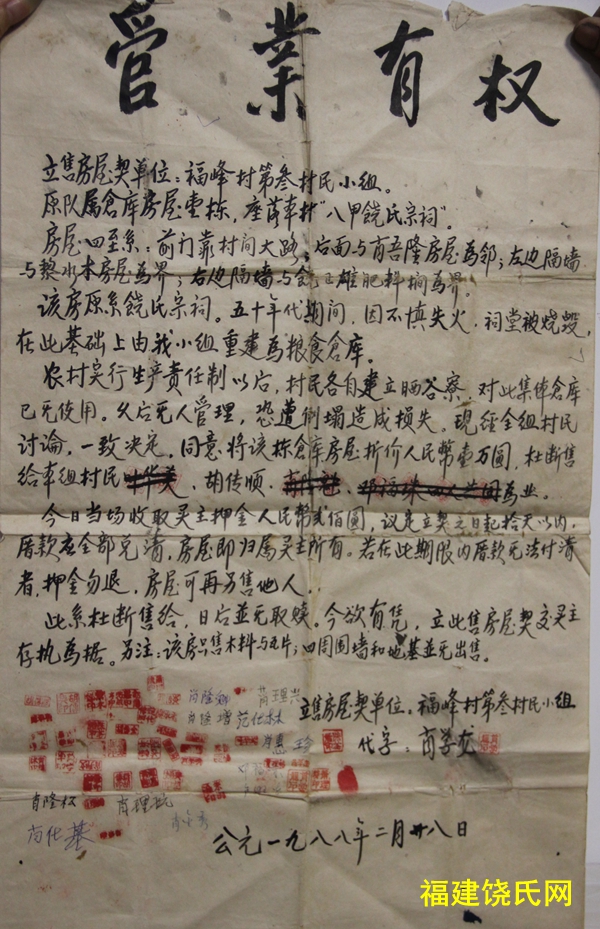 管業有权
立售房屋契单位：福峰村第叁村民小组。
原队属倉库房屋壹栋，座落本村"八甲饒氏宗祠"。
房屋四至系：前门靠村间大路；后面与肖吾隆房屋為邻；左边隔墙
与黎水本房屋為界；右边隔墙与饒正雄肥料橺為界。
该房原系饒氏宗祠。五十年代期间，因不慎失火，祠堂被烧毁，
在此基础上由我小组重建為粮食倉库。
农村实行生产责任制以后，村民各自建立晒谷寮，对此集体倉库
已无使用。久后无人管理，恐遭倒塌造成损失。现经全组村民
讨论，一致决定，同意将该栋倉库房屋折价人民幣壹万圓，杜断售
给本组村民 胡传顺 為业。
今日当场收取买主押金人民幣贰佰圓，议定立契之日起拾天以内，
厝款应全部兑清，房屋即归属买主所有。若在此期限内厝款无法付清
者，押金勿退，房屋可再另售他人。
此系杜断售给，日后並无取赎。今欲有凭，立此售房屋契交买主
存执為据。另注：该房只售木料与瓦片；四周围墙和地基並无出售。
立售房屋契单位：福峰村第叁村民小组
代字：肖学龙
肖隆权
公元一九八八年二月廿八日
福建饶氏网